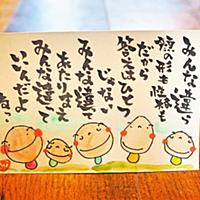 みんな違う
顔の形も性格も
だから
答えはひとつ
じゃない
みんな違って
あたりまえ
みんな違って
いいんだよ
ねっ